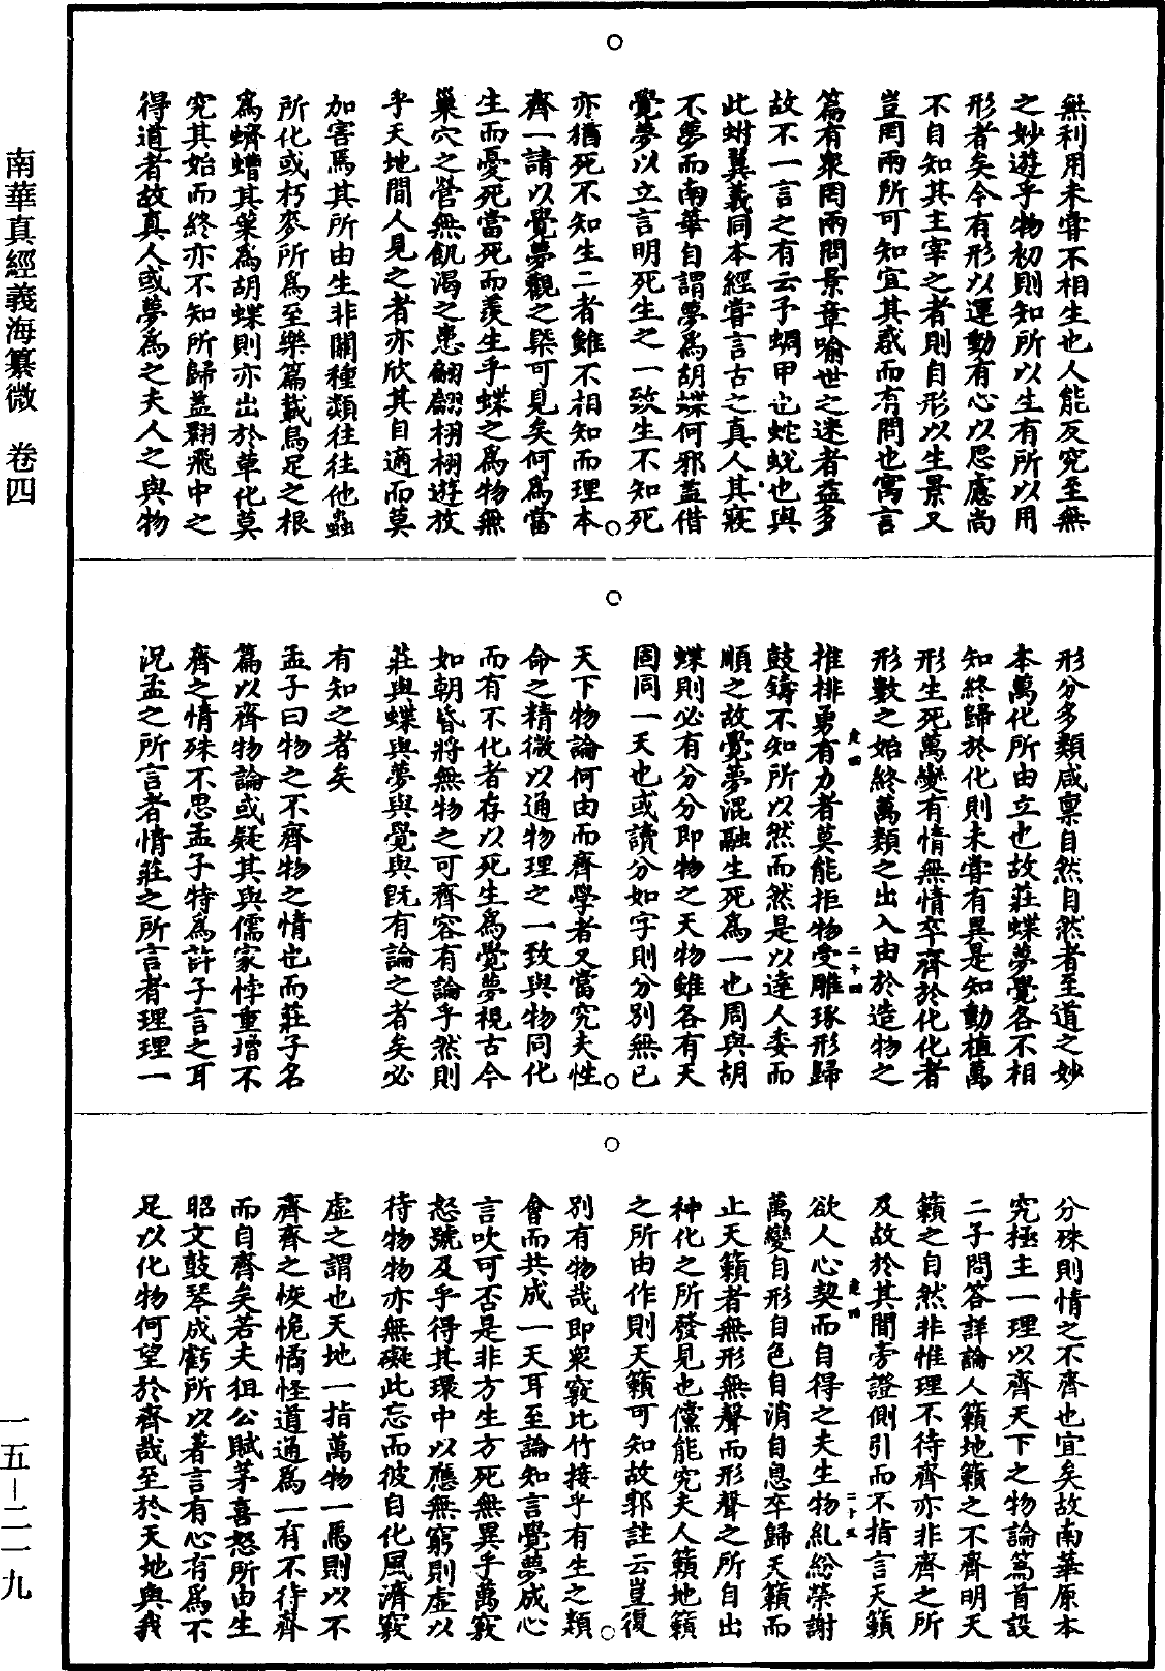 南華真經義海纂微　卷四
一五—二一九
無利用未嘗不相生也人能反究至無
之妙遊乎物初則知所以生有所以用
形者矣今有形以運動有心以思慮尚
不自知其主宰之者則自形以生景又
豈罔兩所可知宜其惑而有問也寓言
篇有衆罔兩問景章喻世之迷者益多
故不一言之有云予蜩甲也蛇蛻也與
此蚹翼義同本經嘗言古之真人其寢
不夢而南華自謂夢為胡蝶何邪蓋借
覺夢以立言明死生之一致生不知死
亦猶死不知生二者雖不相知而理本
齊一請以覺夢觀之槩可見矣何為當
生而憂死當死而羨生乎蝶之為物無
巢穴之營無飢渴之患翩翩栩栩遊放
乎天地間人見之者亦欣其自適而莫
加害焉其所由生非關種類往往他蟲
所化或朽麥所為至樂篇載烏足之根
為蠐螬其葉為胡蝶則亦出於草化莫
究其始而終亦不知所歸蓋翾飛中之
得道者故真人或夢為之夫人之與物
形分多類咸稟自然自然者至道之妙
本萬化所由立也故莊蝶夢覺各不相
知終歸於化則未嘗有異是知動植萬
形生死萬變有情無情卒齊於化化者
形數之始終萬類之出入由於造物之
推排勇有力者莫能拒物受雕琢形歸
鼓鑄不知所以然而然是以達人委而
順之故覺夢混融生死為一也周與胡
蝶則必有分分即物之天物雖各有天
固同一天也或讀分如字則分別無已
天下物論何由而齊學者又當究夫性
命之精微以通物理之一致與物同化
而有不化者存以死生為覺夢視古今
如朝昏將無物之可齊容有論乎然則
莊與蝶與夢與覺與既有論之者矣必
有知之者矣
孟子曰物之不齊物之情也而莊子名
篇以齊物論或疑其與儒家悖重增不
齊之情殊不思孟子特為許子言之耳
況孟之所言者情莊之所言者理理一
分殊則情之不齊也宜矣故南華原本
究極主一理以齊天下之物論篇首設
二子問答詳論人籟地籟之不齊明天
籟之自然非惟理不待齊亦非齊之所
及故於其間旁證側引而不指言天籟
欲人心契而自得之夫生物糺紛榮謝
萬變自形自色自消自息卒歸天籟而
止天籟者無形無聲而形聲之所自出
神化之所發見也儻能究夫人籟地籟
之所由作則天籟可知故郭註云豈復
別有物哉即衆竅比竹接乎有生之類
會而共成一天耳至論知言覺夢成心
言吹可否是非方生方死無異乎萬竅
怒號及乎得其環中以應無窮則虛以
待物物亦無礙此忘而彼自化風濟竅
虛之謂也天地一指萬物一馬則以不
齊齊之恢恑憰怪道通為一有不待齊
而自齊矣若夫狙公賦芧喜怒所由生
昭文鼓琴成虧所以著言有心有為不
足以化物何望於齊哉至於天地與我